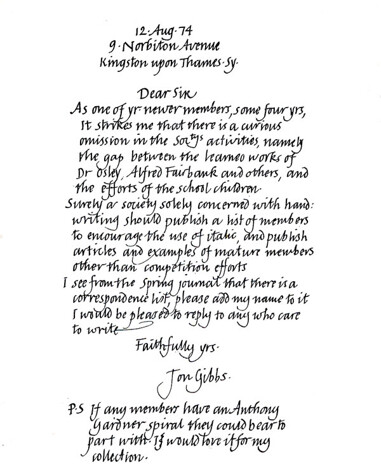 12·Aug·74
9·Norbiton Avenue
Kingston upon Thames·Sy·
Dear Sir
As one of yr newer members, some four yrs,
It strikes me that there is a curious
omission in the Soctys activities, namely
the gap between the learned works of
Dr Osley, Alfred Fairbank and others, and
the efforts of the school children·
Surely a society solely concerned with hand:
writing should publish a list of members
to encourage the use of italic, and publish
articles and examples of mature members
other than competition efforts
I see from the Spring journal that there is a
correspondence list, please add my name to it
I would be pleased to reply to any who care
to write
Faithfully yrs·
Jon Gibbs·
P·S If any members have an Anthony
Gardner spiral they could bear to
part with·I would love it for my
collection·